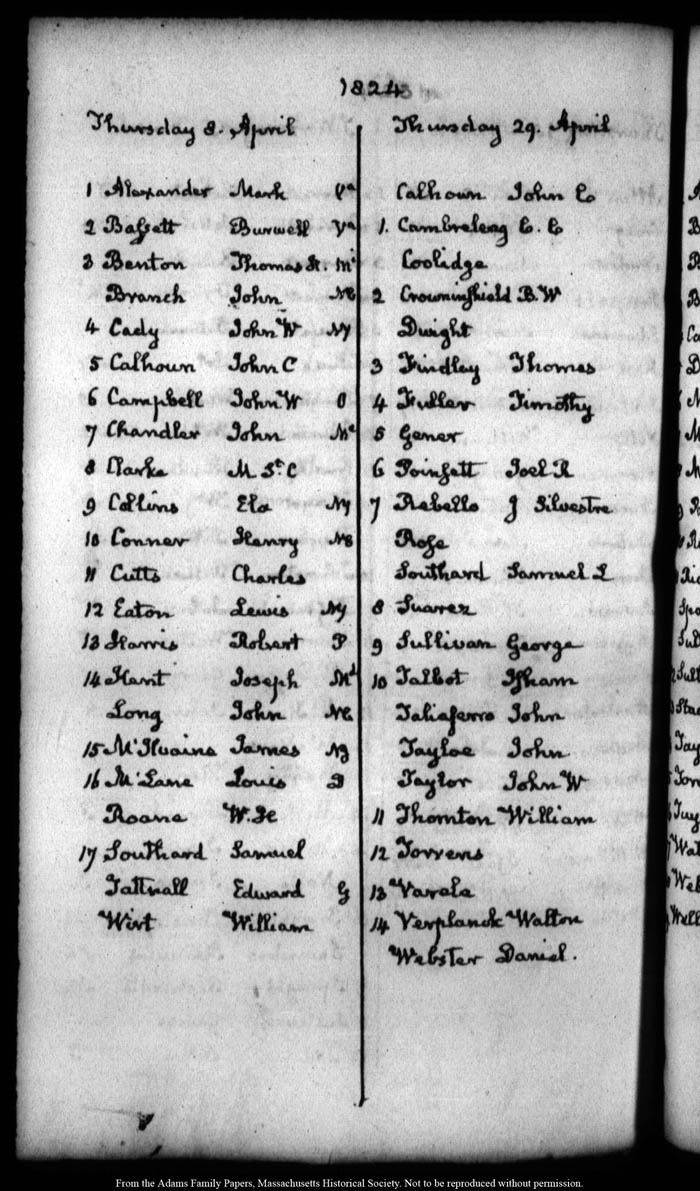 1824
Thursday 8. April
1 Alexander Mark Va
2 Bassett Burwell Va
3 Benton Thomas H. Mi
Branch John NC
4 Cady John W NY
5 Calhoun John C
6 Campbell John W O
7 Chandler John Me
8 Clarke M St. C
9 Collins Ela NY
10 Conner Henry NC
11 Cutts Charles
12 Eaton Lewis NY
13 Harris Robert P
14 Kent Joseph Md
Long John NC
15 McIlvaine James NJ
16 McLane Louis D
Roane W. H
17 Southard Samuel
Tattnall Edward G
Wirt William
Thursday 29. April
Calhoun John C
1. Cambreleng C. C
Coolidge
2 Crowninshield B. W
Dwight
3 Findlay Thomas
4 Fuller Timothy
5 Gener
6 Poinsett Joel R
7 Rebello J Silvestre
Rose
Southard Samuel L
8 Suarez
9 Sullivan George
10 Talbot Isham
Taliaferro John
Tayloe John
Taylor John W
11 Thornton William
12 Torrens
13 Varela
14 Verplanck Walton
Webster Daniel.
From the Adams Family Papers, Massachusetts Historical Society. Not to be reproduced without permission.